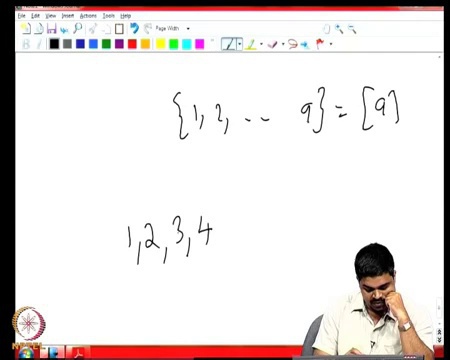 File Edit View Insert Actions Tools Help
Page Width
{1, 2, .. 9} = [9]
1, 2, 3, 4
NPTEL